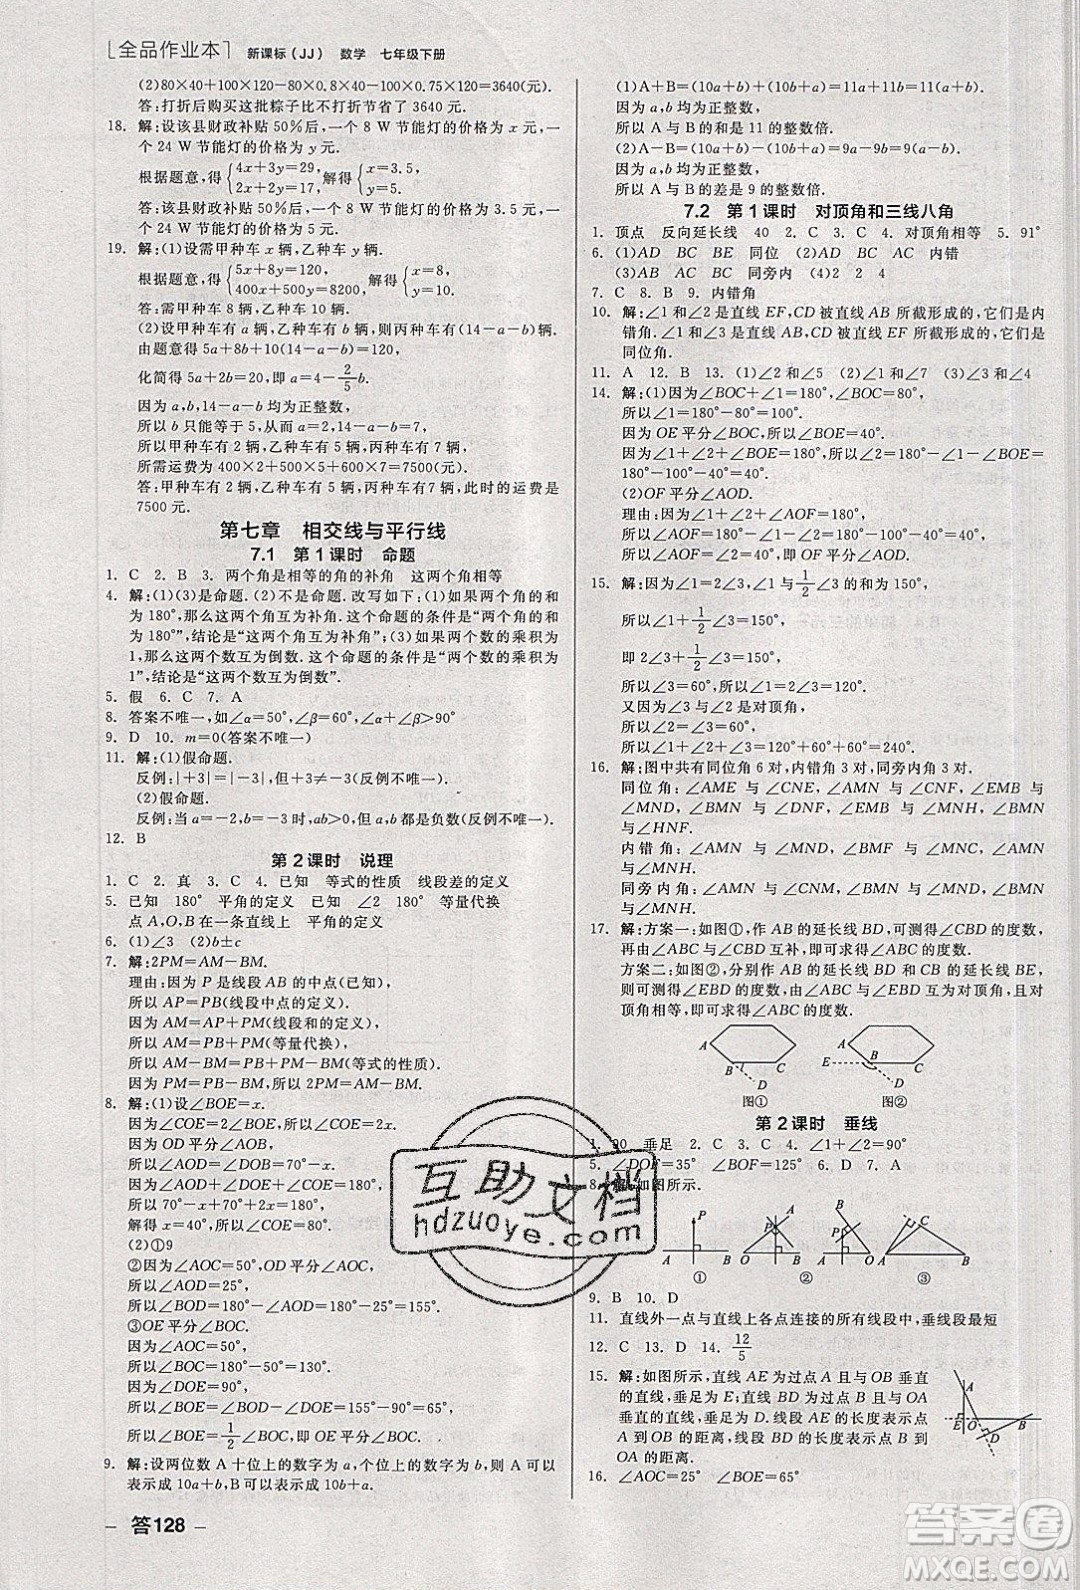 [全品作业本] 新课标(JJ) 数学 七年级下册
(2)80×40+100×120-80×0.8×40-100×0.75×120=3640(元).
答:打折后购买这批粽子比不打折节省了 3640 元.
18. 解:设该县财政补贴 50%后,一个 8 W 节能灯的价格为 x 元,一
个 24 W 节能灯的价格为 y 元.
根据题意,得{4x+3y=29, 2x+2y=17, 解得{x=3.5, y=5.
答:该县财政补贴 50%后,一个 8 W 节能灯的价格为 3.5 元,一
个 24 W 节能灯的价格为 5 元.
19. 解:(1)设需甲种车 x 辆,乙种车 y 辆.
根据题意,得{5x+8y=120, 400x+500y=8200, 解得{x=8, y=10.
答:需甲种车 8 辆,乙种车 10 辆.
(2)设甲种车有 a 辆,乙种车 b 辆,则丙种车(14-a-b)辆.
由题意得 5a+8b+10(14-a-b)=120,
化简得 5a+2b=20,即 a=4-2/5 b.
因为 a,b,14-a-b 均为正整数,
所以 b 只能等于 5,从而 a=2,14-a-b=7,
所以甲种车有 2 辆,乙种车有 5 辆,丙种车有 7 辆,
所需运费为 400×2+500×5+600×7=7500(元).
答:甲种车有 2 辆,乙种车有 5 辆,丙种车有7 辆,此时的运费是
7500 元.
第七章 相交线与平行线
7.1 第 1 课时 命题
1. C 2. B 3. 两个角是相等的角的补角 这两个角相等
4. 解:(1)(3)是命题.(2)不是命题. 改写如下:(1)如果两个角的和
为 180°,那么这两个角互为补角.这个命题的条件是“两个角的和
为 180°”,结论是“这两个角互为补角”;(3)如果两个数的乘积为
1,那么这两个数互为倒数. 这个命题的条件是“两个数的乘积为
1”,结论是“这两个数互为倒数”.
5. 假 6. C 7. A
8. 答案不唯一,如∠α=50°,∠β=60°,∠α+∠β>90°
9. D 10. m=0(答案不唯一)
11. 解:(1)假命题.
反例:|+3|=|-3|,但+3≠-3(反例不唯一).
(2)假命题.
反例:当 a=-2,b=-3 时,ab>0,但 a,b 都是负数(反例不唯一).
12. B
第 2 课时 说理
1. C 2. 真 3. C 4. 已知 等式的性质 线段差的定义
5. 已知 180° 平角的定义 已知 ∠2 180° 等量代换
点 A,O,B 在一条直线上 平角的定义
6. (1)∠3 (2)b±c
7. 解:2PM=AM-BM.
理由:因为 P 是线段 AB 的中点(已知),
所以 AP=PB(线段中点的定义).
因为 AM=AP+PM(线段和的定义),
所以 AM=PB+PM(等量代换),
所以 AM-BM=PB+PM-BM(等式的性质).
因为 PM=PB-BM,所以 2PM=AM-BM.
8. 解:(1)设∠BOE=x.
因为∠COE=2∠BOE,所以∠COE=2x.
因为 OD 平分∠AOB,
所以∠AOD=∠BOD=70°-x.
因为∠AOD+∠DOE+∠COE=180°,
所以 70°-x+70°+2x=180°,
解得 x=40°,所以∠COE=80°.
(2)①9
②因为∠AOC=50°,OD 平分∠AOC,
所以∠AOD=25°,
所以∠BOD=180°-25°=155°.
③OE 平分∠BOC.
因为∠AOC=50°,
所以∠BOC=130°.
所以∠BOE=∠BOC
所以∠BOE=1/2∠BOC,即 OE 平分∠BOC.
9. 解:设两位数 A 十位上的数字为 a,个位上的数字为 b,则 A 可以
表示成 10a+b,B可以表示成 10b+a.
答128
(1)A+B=(10a+b)+(10b+a)=11a+11b=11(a+b).
因为 a,b 均为正整数,
所以 A 与 B 的和是 11 的整数倍.
(2)A-B=(10a+b)-(10b+a)=9a-9b=9(a-b).
因为 a,b 均为正整数,
所以 A 与 B 的差是 9 的整数倍.
7.2 第 1 课时 对顶角和三线八角
1. 顶点 反向延长线 40 2. C 3. C 4. 对顶角相等 5. 91°
6. (1)AD BC BE 同位 (2)BC AC 内错
(3)AB AC BC 同旁内 (4)2 2 4
7. C 8. B 9. 内错角
10. 解:∠1 和∠2 是直线 EF,CD 被直线 AB 所截形成的,它们是内
错角.∠1 和∠3 是直线 AB,CD 被直线 EF 所截形成的,它们是
同位角.
11. A 12. B 13. (1)∠2 (2)∠1 和∠2 (3)∠3 和∠4
14. 解:(1)因为∠1+∠BOC=180°,∠BOC=80°,
所以∠1=180°-80°=100°.
因为 OE 平分∠BOC,所以∠BOE=40°.
因为∠1+∠2+∠BOE=180°,
所以∠2=180°-100°-40°=40°.
(2)OF 平分∠AOD.
理由:因为∠1+∠2+∠AOF=180°,
所以∠AOF=180°-100°-40°=40°,
所以∠AOF=∠2,即 OF 平分∠AOD.
15. 解:因为∠1=∠2=∠3,∠1 与1/2∠3 的和为 150°,
所以∠1+1/2∠3=150°,
即 3/2∠3=150°,
所以∠3=100°,所以∠1=100°.
又因为∠1 与∠2 是对顶角,
所以∠2=∠1=100°.
16. 解:图中共有同位角 6 对,内错角 3 对,同旁内角 3 对.
同位角:∠AME 与∠CNE,∠AMN 与∠CNF,∠EMB
与∠MND,∠BMN 与∠DNF,∠BME 与∠MNH,∠BMN
与∠HNF.
内错角:∠AMN 与∠MND,∠BMN 与∠CNM,∠AMN
与∠MNH.
同旁内角:∠AMN 与∠CNM,∠BMN 与∠MND,∠BMN
与∠MNH.
17. 解:方案一:如图①,作 AB 的延长线 BD,可测得∠CBD 的度数,
再由∠ABC 与∠CBD 互补,即可求得∠ABC 的度数.
方案二:如图②,分别作 AB 的延长线 BD 和 CB 的延长线 BE,
可测得∠EBD 的度数,由∠ABC 与∠EBD 为对顶角,且对
顶角相等,即可求得∠ABC 的度数.
A B C D
图①
A E B C D
图②
第 2 课时 垂线
1. 90 垂足 2. C 3. C 4. ∠1+∠2=90°
5. ∠DOF=35° ∠BOF=125° 6. D 7. A
8. 解:如图所示.
① ② ③
9. B 10. D
11. 直线外一点与直线上各点连接的所有线段中,垂线段最短
12. C 13. D 14. 12/5
15. 解:如图所示,直线 AE 为过点 A 与 OB 垂直
的直线,垂足为 E;直线 BD 为过点 B 与 OA
垂直的直线,垂足为 D. 线段 AE 的长度表示点
A 到 OB 的距离,线段 BD 的长度表示点 B 到
OA 的距离.
16. ∠AOC=25° ∠BOC=65°
互助文档
hdzuoye.com
答案圈
MXQE.COM